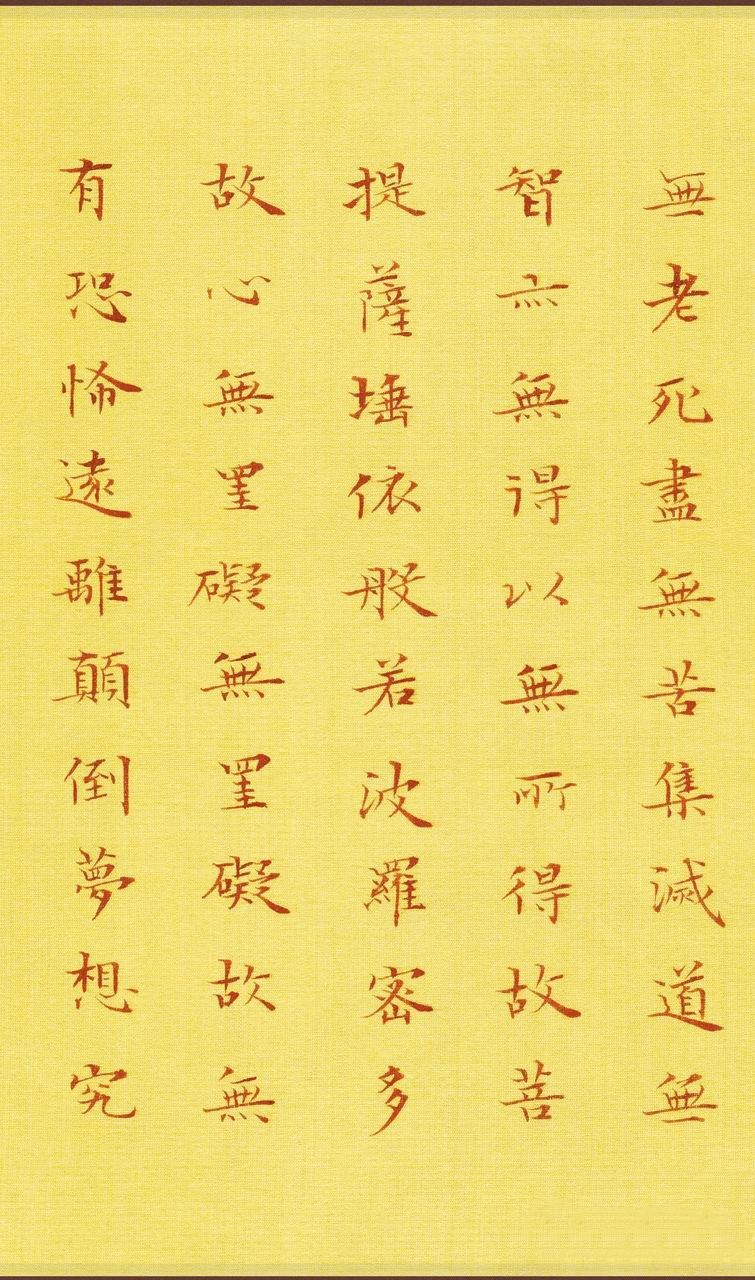 無老死盡無苦集滅道無
智亦無得以無所得故菩
提薩埵依般若波羅密多
故心無罣礙無罣礙故無
有恐怖遠離顛倒夢想究